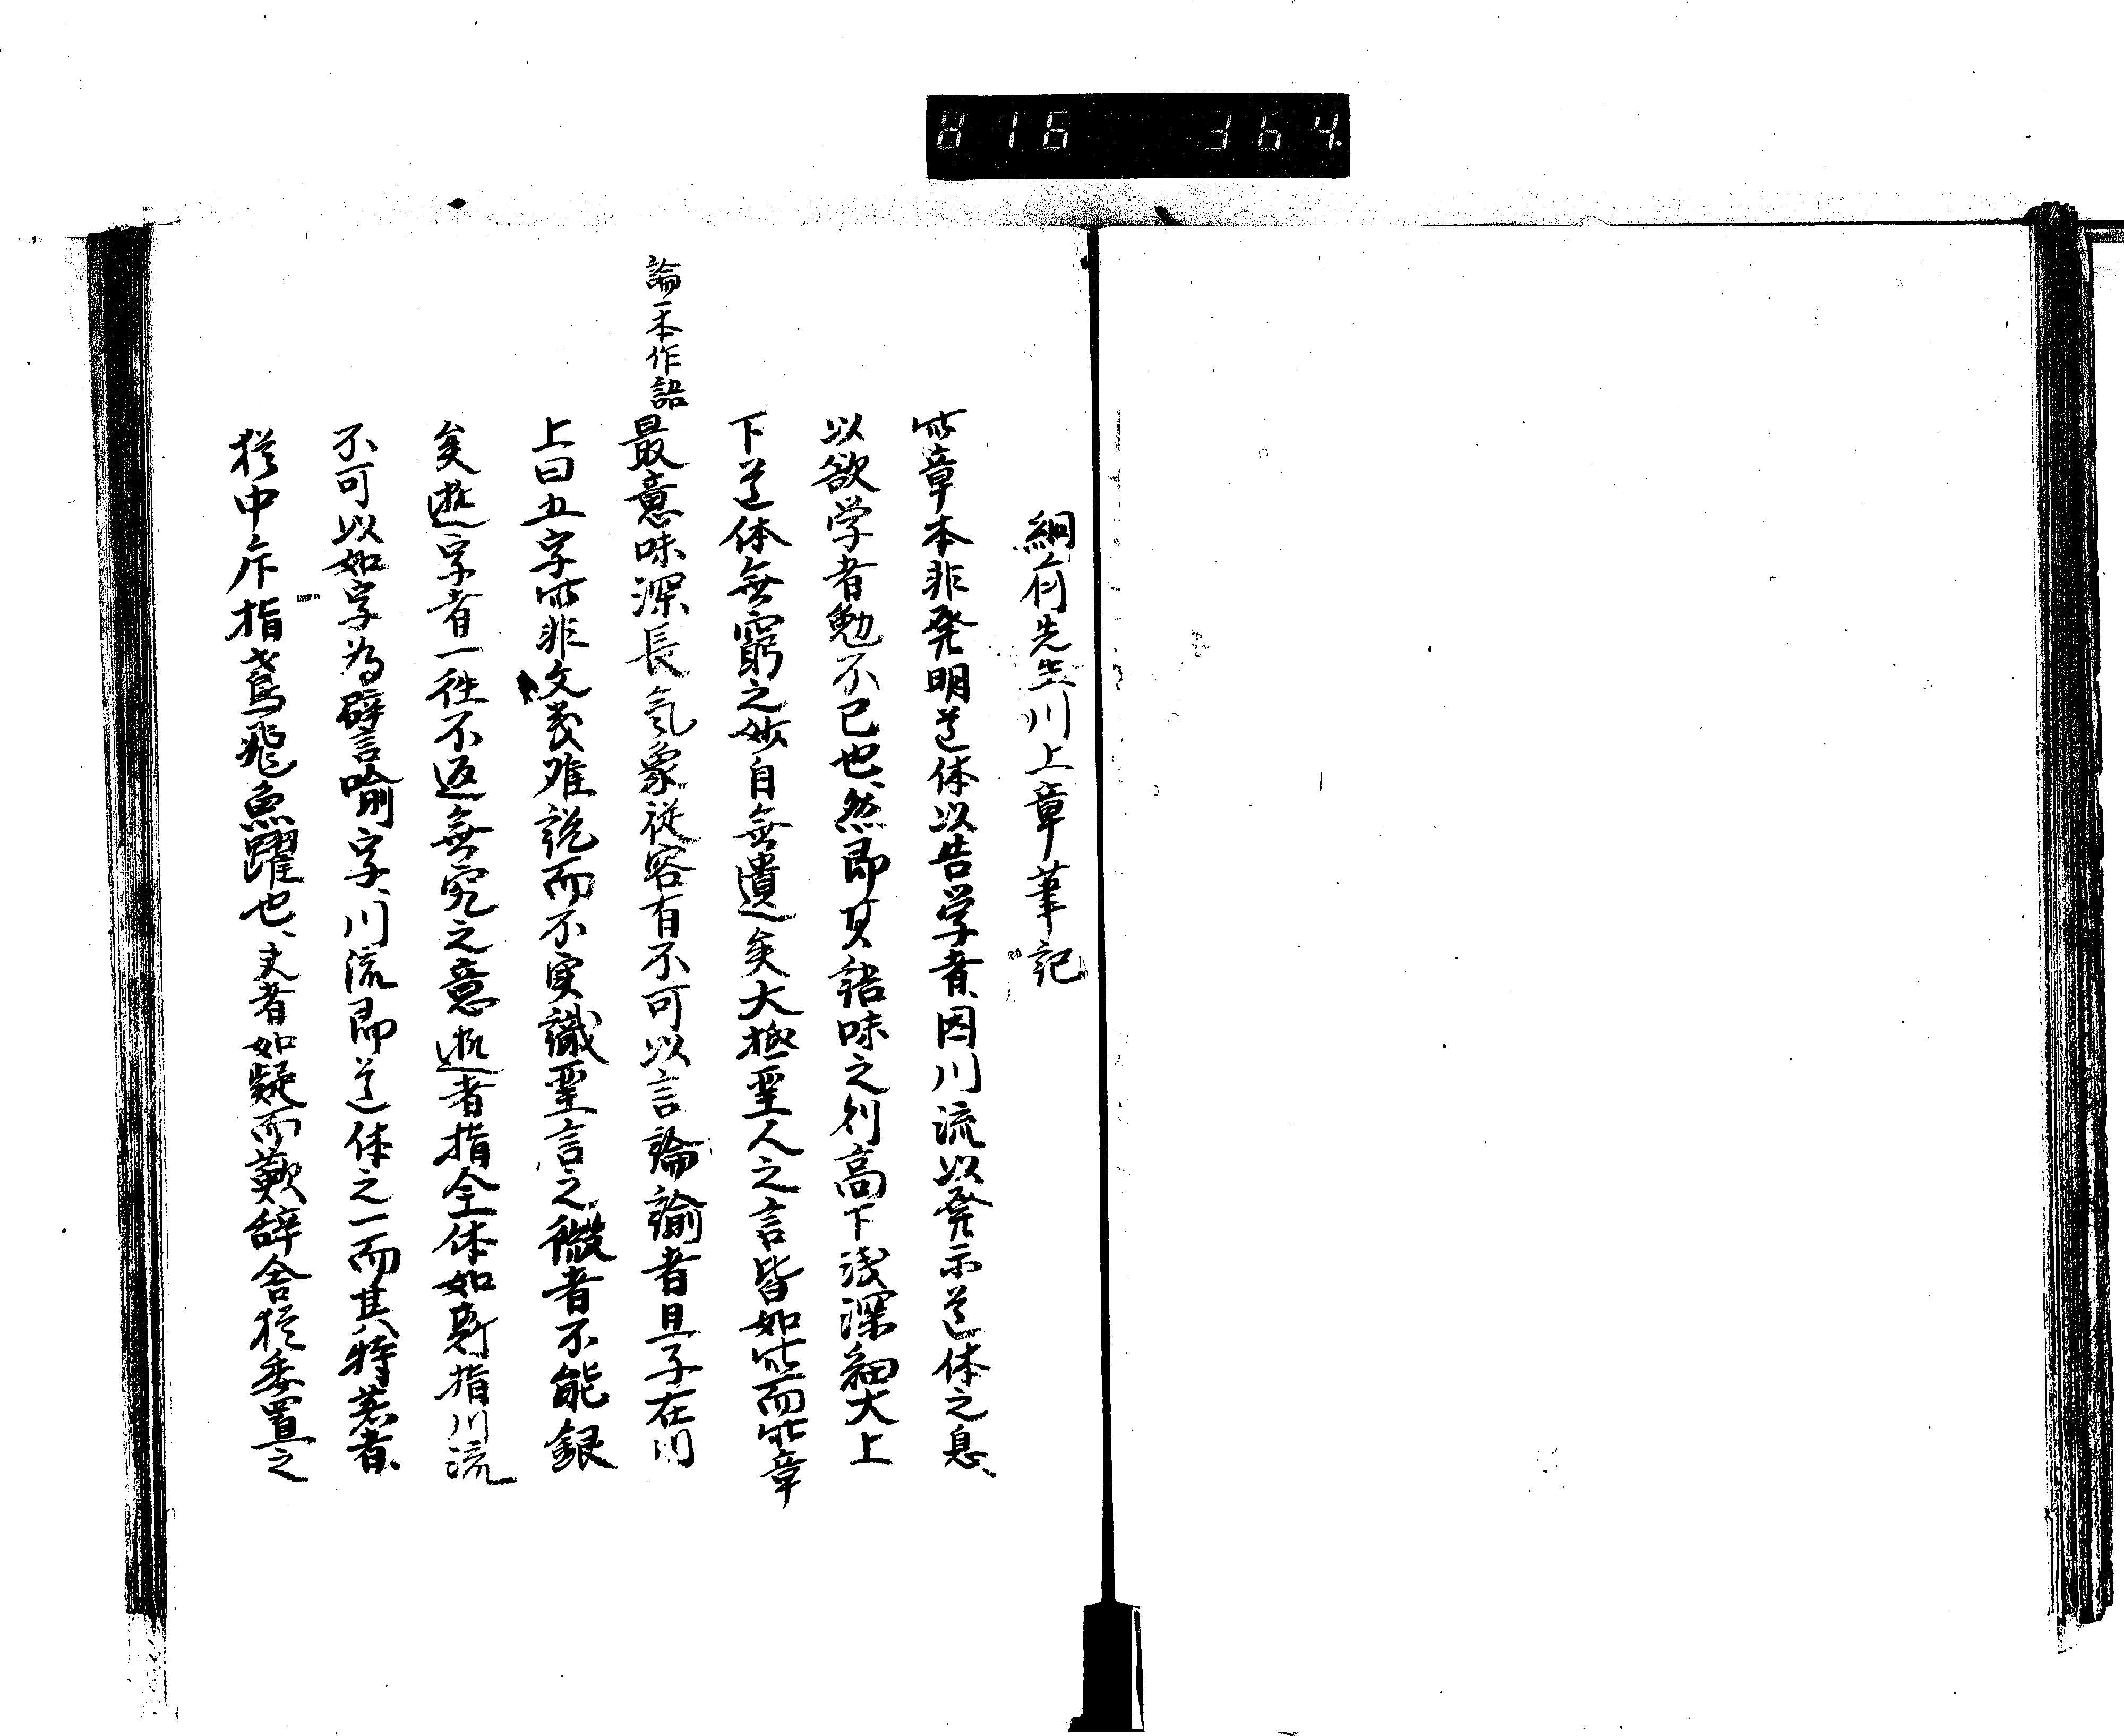 816 364.
絅斎先生川上章筆記
此章本非発明道体以告学者、因川流以発示道体之息、
以欲学者勉不已也、然即其語味之則高下浅深細大上
下道体無窮之妙自無遺矣大抵聖人之言皆如此而此章
論一本作語
最意味深長気象従容有不可以言論諭者且子在川
上曰五字此非文義难説而不実識聖言之微者不能
矣逝字者一往不返無究之意逝者指全体如斯指川流
不可以如字為譬喩字、川流即道体之一而其特著者、
猶中庸指鳶飛魚躍也、夫者如疑而歎辞舎猶委置之